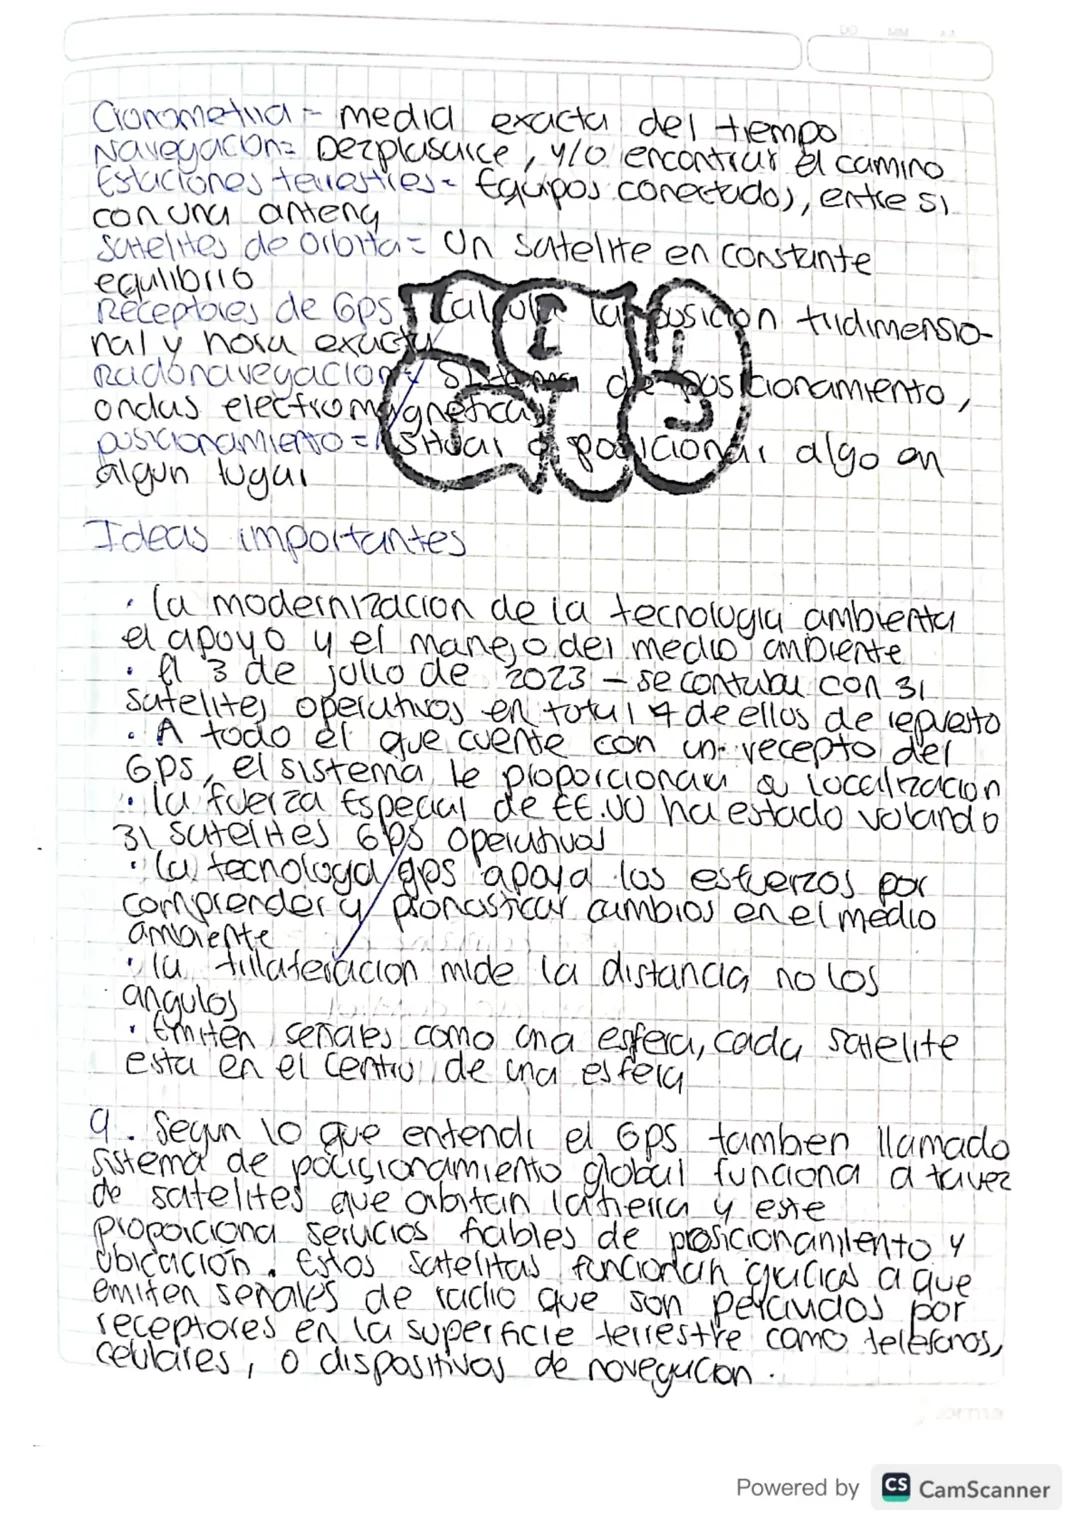 DD MM AA
Cronometria = media exacta del tiempo
Navegacion= Dezplasarce, y/o encontrar el camino
Estaciones terrestres= Equipos conectados, entre si
con una antena
Satelites de orbita= Un satelite en constante
equilibrio
Receptores de Gps= Calcula la posicion tridimensio-
nal y hora exacta
Radonavegacion= Sistema de posicionamiento,
ondas electromagneticas
posicionamiento = Situar o posicionar algo en
algun lugar
Ideas importantes
· la modernizacion de la tecnologia ambienta
el apoyo y el manejo del medio ambiente
· El 3 de julio de 2023 - se contaba con 31
satelites operativos en total 4 de ellos de repuesto
· A todo el que cuente con un recepto del
Gps, el sistema le proporcionara a localizacion
· la fuerza Especial de EE.UU ha estado volando
31 satelites Gps operativos
· la tecnologa gps apoya los esfuerzos por
comprender y pronosticar cambios en el medio
ambiente
· la trilateracion mide la distancia no los
angulos
· Emiten señales como una esfera, cada satelite
esta en el centro de una esfera
9. Segun lo que entendi el Gps tamben llamado
sistema de pociçionamiento global funciona a travez
de satelites que orbitan la tierra y este
proporciona servicios fiables de posicionamiento y
ubicación. Estos satelitas funcionan gracias a que
emiten señales de radio que son percividos por
receptores en la superficie terrestre como telefonos,
celulares, o dispositivos de navegacion.
norma
Powered by CS CamScanner